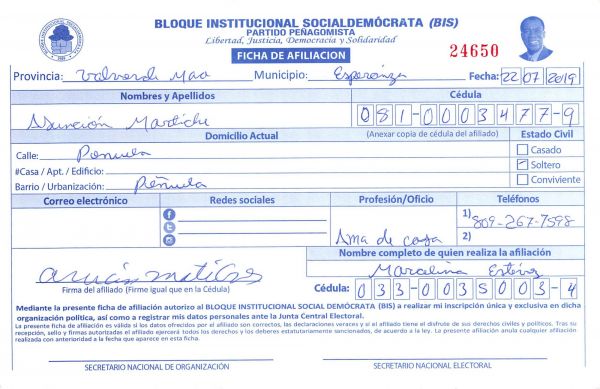 BLOQUE INSTITUCIONAL SOCIALDEMÓCRATA (BIS)
PARTIDO PEÑAGOMISTA
Libertad, Justicia, Democracia y Solidaridad
FICHA DE AFILIACION
24650
Provincia: Valverde Mao Municipio: Esperanza Fecha: 22 07 2019
Nombres y Apellidos Cédula
Asunción 081-0003477-9
Domicilio Actual (Anexar copia de cédula del afiliado) Estado Civil
Calle: Peñuela Casado
#Casa / Apt. / Edificio: Soltero
Barrio / Urbanización: Peñuela Conviviente
Correo electrónico Redes sociales Profesión/Oficio Teléfonos
1) 809-267-7598
Ama de casa 2)
Nombre completo de quien realiza la afiliación
Marcelina Estévez
Firma del afiliado (Firme igual que en la Cédula) Cédula: 033-0035003-4
Mediante la presente ficha de afiliación autorizo al BLOQUE INSTITUCIONAL SOCIAL DEMÓCRATA (BIS) a realizar mi inscripción única y exclusiva en dicha
organización política, así como a registrar mis datos personales ante la Junta Central Electoral.
La presente ficha de afiliación es válida si los datos ofrecidos por el afiliado son correctos, las declaraciones veraces y si el afiliado tiene el disfrute de sus derechos civiles y políticos. Tras su
recepción, sello y firmas autorizadas el afiliado ejercerá todos los derechos y los deberes estatutariamente sancionados, de acuerdo a la ley. La presente afiliación anula cualquier afiliación
realizada con anterioridad a la fecha que aparece en esta ficha.
SECRETARIO NACIONAL DE ORGANIZACIÓN SECRETARIO NACIONAL ELECTORAL